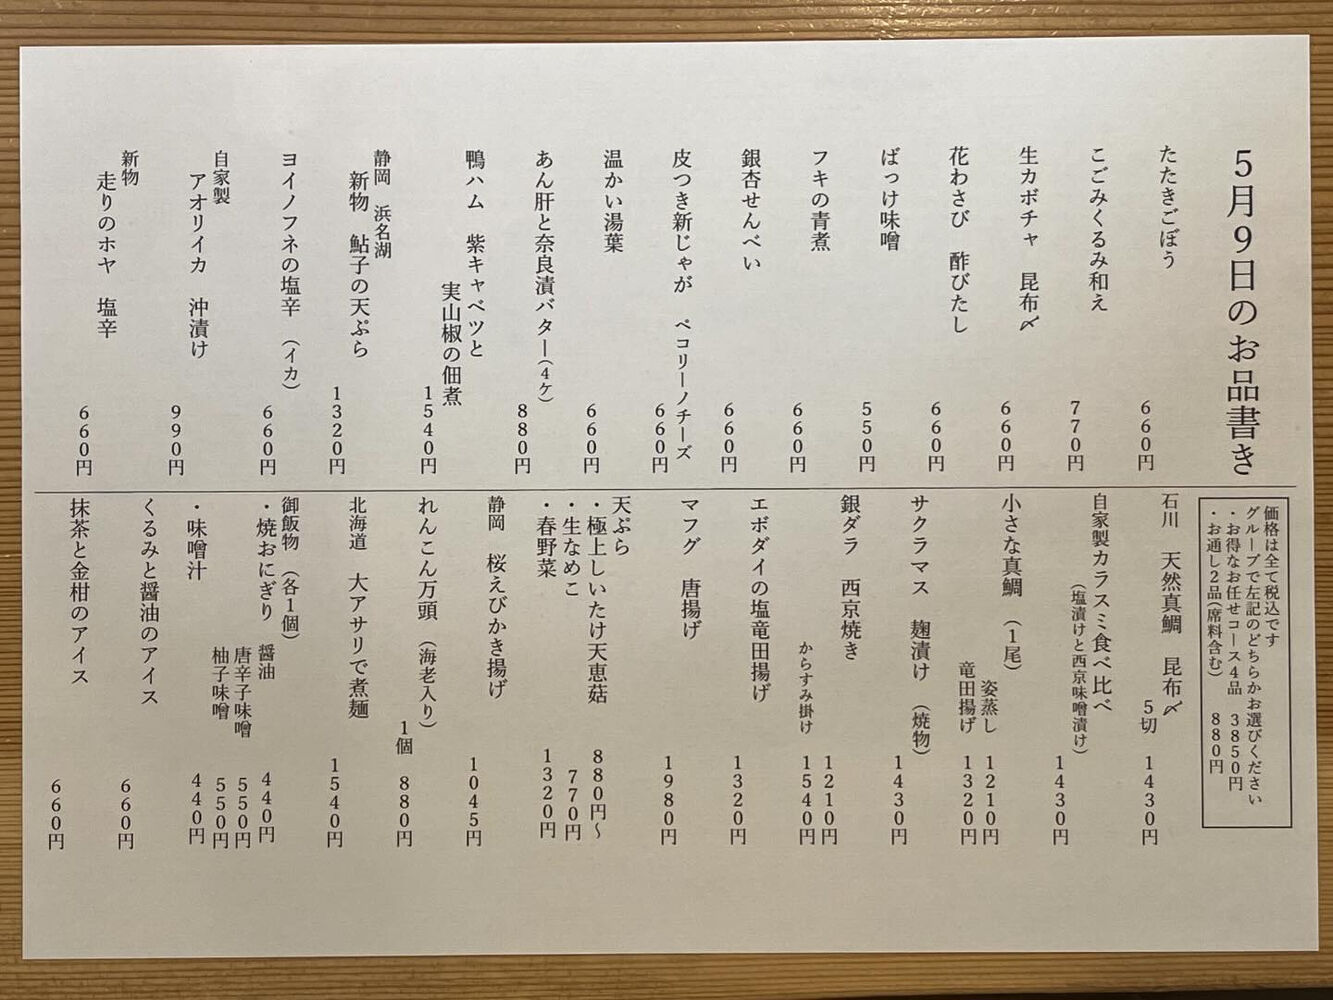 5月9日のお品書き
たたきごぼう 660円
こごみくるみ和え 770円
生カボチャ 昆布〆 660円
花わさび 酢びたし 660円
ばっけ味噌 550円
フキの青煮 660円
銀杏せんべい 660円
皮つき新じゃが ペコリーノチーズ 660円
温かい湯葉 660円
あん肝と奈良漬バター(4ケ) 880円
鴨ハム 紫キャベツと
実山椒の佃煮 1540円
静岡 浜名湖
新物 鮎子の天ぷら 1320円
ヨイノフネの塩辛 (イカ) 660円
自家製
アオリイカ 沖漬け 990円
新物
走りのホヤ 塩辛 660円
価格は全て税込です
グループで左記のどちらかお選びください
・お得なお任せコース4品 3850円
・お通し2品(席料含む) 880円
石川 天然真鯛 昆布〆
5切 1430円
自家製カラスミ食べ比べ
(塩漬けと西京味噌漬け) 1430円
小さな真鯛 (1尾)
姿蒸し 1210円
竜田揚げ 1320円
サクラマス 麹漬け (焼物) 1430円
銀ダラ 西京焼き 1210円
からすみ掛け 1540円
エボダイの塩竜田揚げ 1320円
マフグ 唐揚げ 1980円
天ぷら
・極上しいたけ天恵菇 880円〜
・生なめこ 770円
・春野菜 1320円
静岡 桜えびかき揚げ 1045円
れんこん万頭 (海老入り)
1個 880円
北海道 大アサリで煮麺 1540円
御飯物 (各1個)
・焼おにぎり 醤油 440円
唐辛子味噌 550円
柚子味噌 550円
・味噌汁 440円
くるみと醤油のアイス 660円
抹茶と金柑のアイス 660円